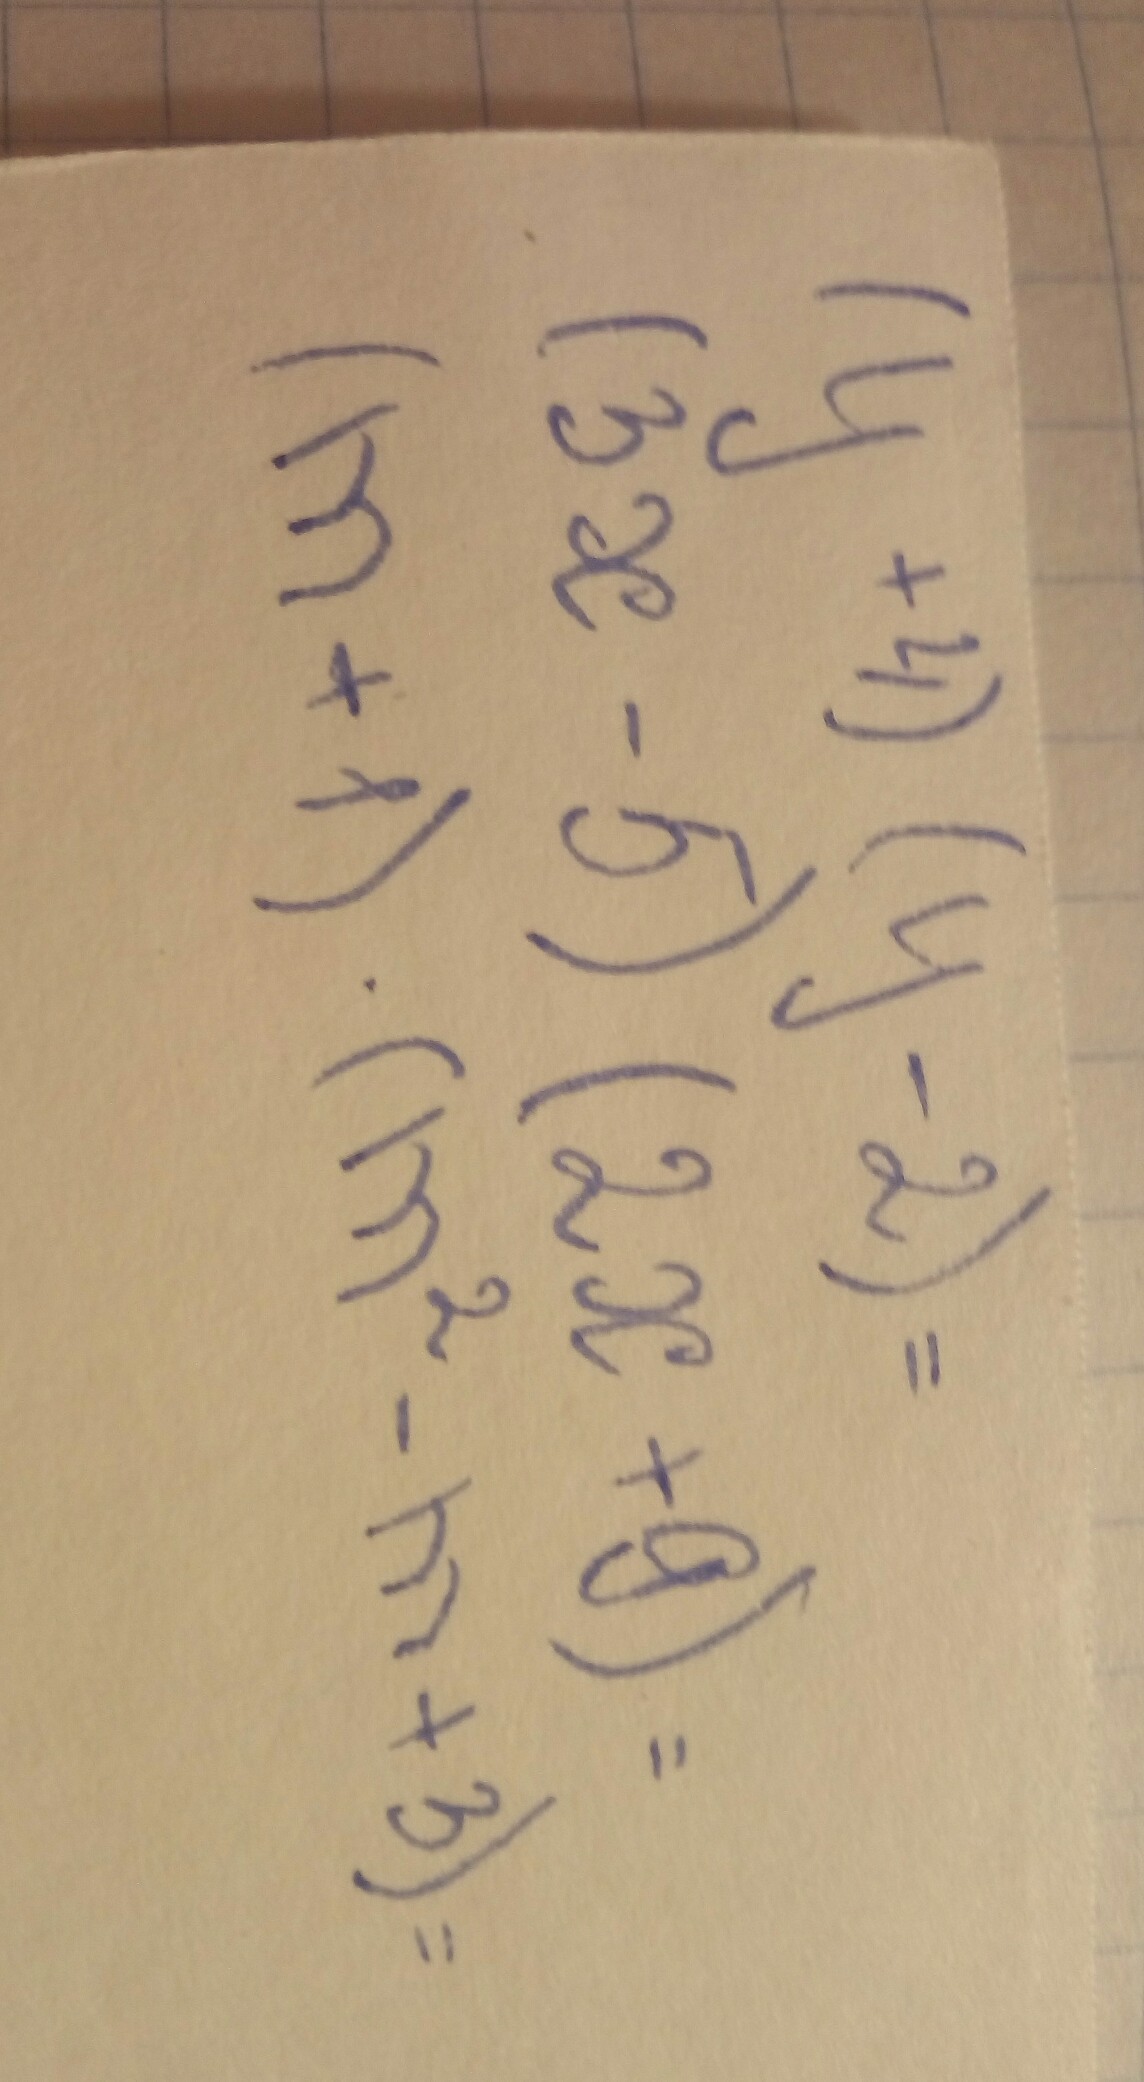 (y + 4) (y - 2) =
(3x - 5) (2x + 9) =
(m + 1) · (m² - m + 3) =